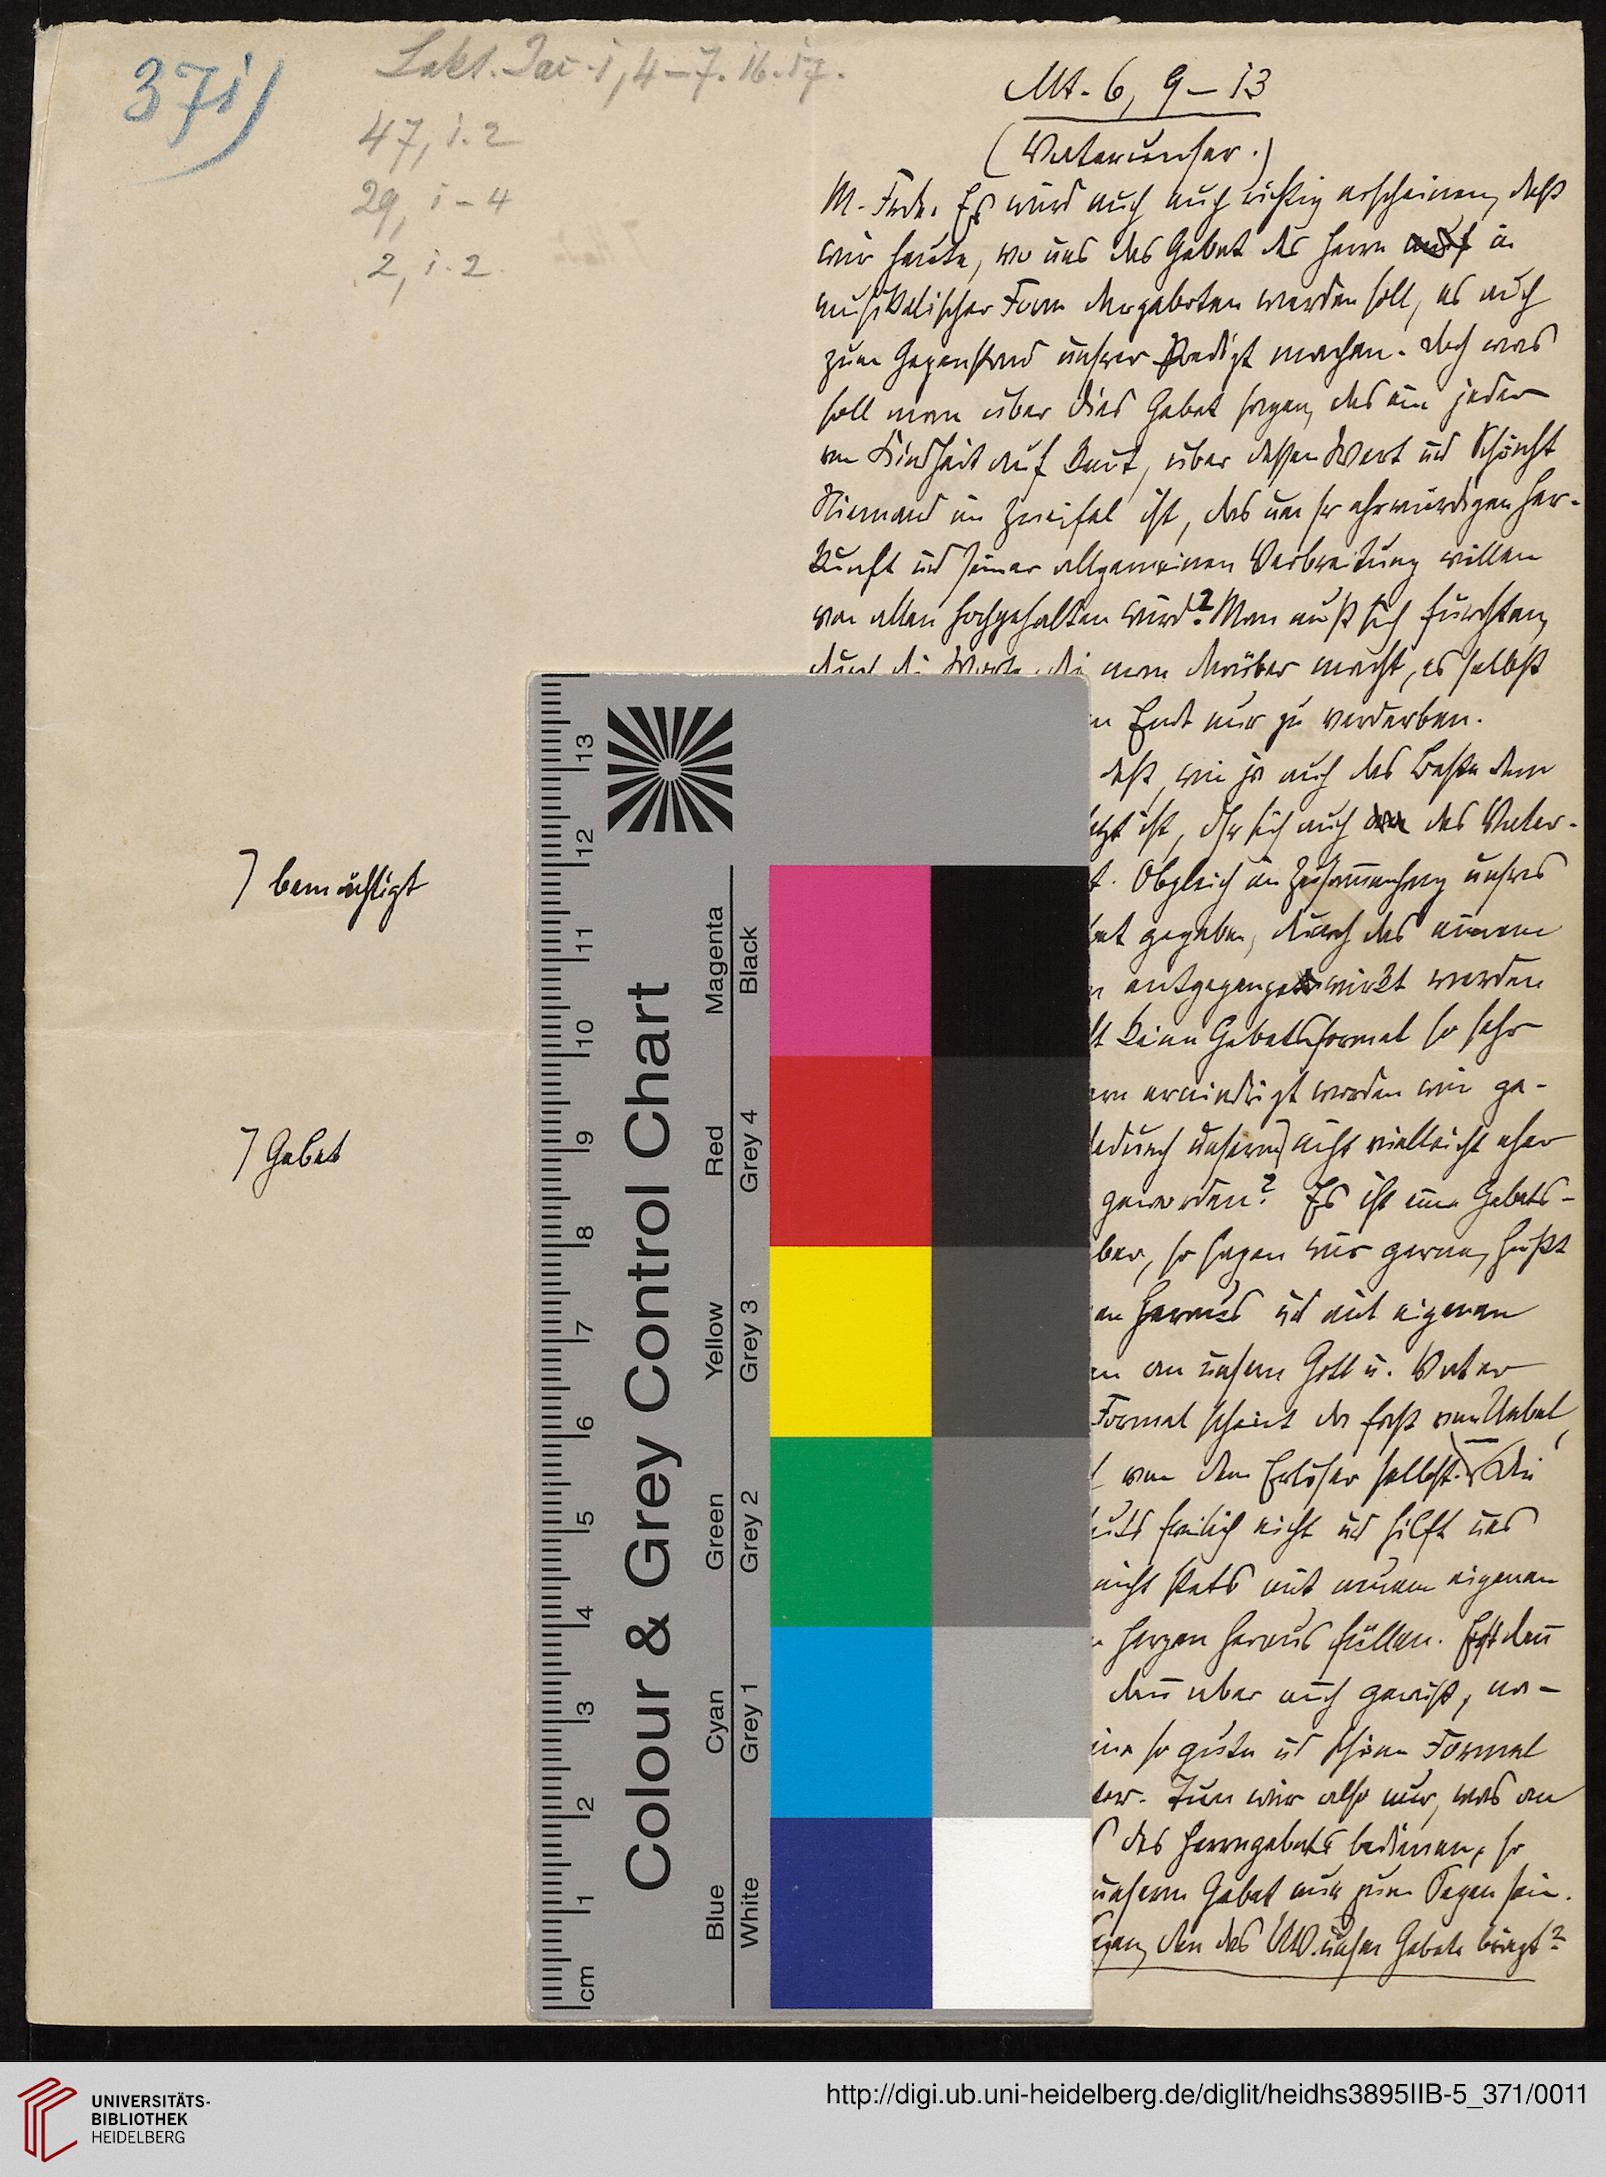 371)
Lekt. Jac. 1, 4-7. 16. 17.
47, 1. 2
29, 1-4
2, 1. 2.
Mt. 6, 9-13
(Vaterunser.)
M. Frde. Es wird euch auch richtig erscheinen, daß
wir heute, wo uns das Gebet des Herrn in
musikalischer Form dargeboten werden soll, es auch
zum Gegenstand unsrer Predigt machen. Doch was
soll man über dies Gebet sagen, das ein jeder
von Kindheit auf kennt, über dessen Wert und Schönheit
Niemand im Zweifel ist, das um so ehrwürdigen Her-
kunft und seiner allgemeinen Verbreitung willen
von allen hochgehalten wird? Man muß sich fürchten,
durch die Worte, die man darüber macht, es selbst
Ende nur zu verderben.
daß, wie ja auch das Beste dem
ist, sich auch des Vater-
⁊ bemächtigt
Obgleich im Zusammenhang unsres
gegeben, durch das einem
entgegengewirkt werden
keine Gebetsformel so sehr
erniedrigt worden wie ge-
⁊ Gebet
dadurch unserm ⁊ nicht vielleicht eher
geworden? Es ist eine Gebets-
so sagen wir gerne, heißt
heraus und mit eigenen
an unsern Gott u. Vater
Formel scheint da fast vom Uebel,
von dem Erlöser selbst. Die
freilich nicht und hilft uns
nicht stets mit neuem eigenen
Herzen heraus füllen. Ist denn
denn aber auch gewiß,
so gute und schöne Formel
Tun wir also nur, was an
des Herrngebets bedienen, so
unserm Gebet nur zum Segen sein.
den das VU. unserm Gebete bringt?
Colour & Grey Control Chart
Magenta Black
Red Grey 4
Yellow Grey 3
Green Grey 2
Cyan Grey 1
Blue White
cm 1 2 3 4 5 6 7 8 9 10 11 12 13
UNIVERSITÄTS-
BIBLIOTHEK
HEIDELBERG
http://digi.ub.uni-heidelberg.de/diglit/heidhs3895IIB-5_371/0011